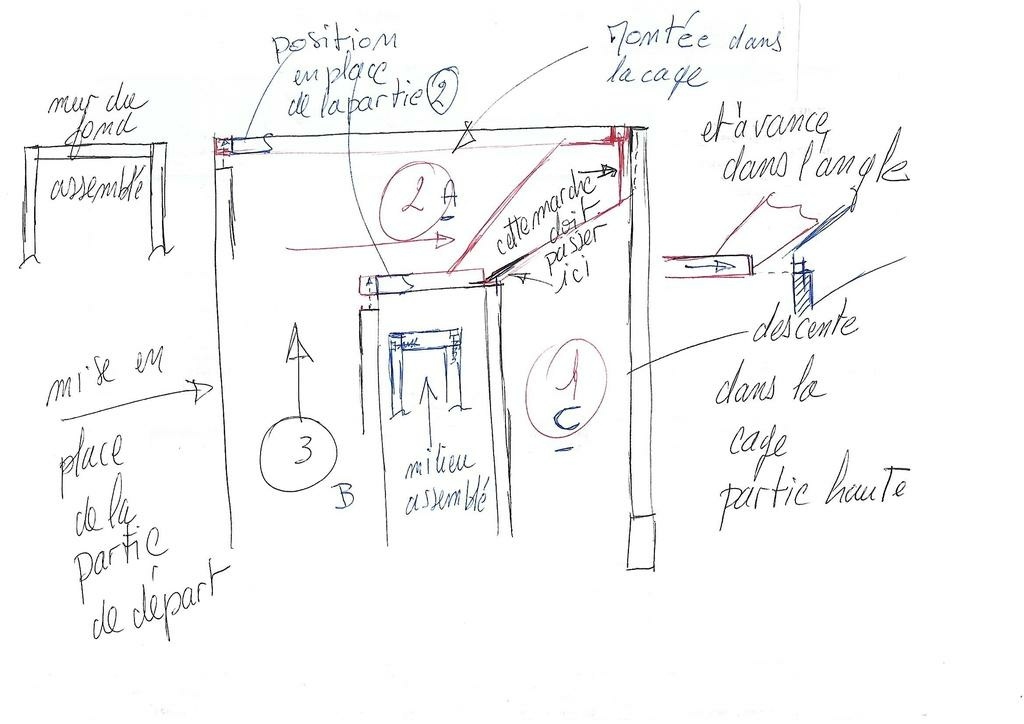 position
en place
de la partie 2
Montée dans
la cage
mur du
fond
assemblé
et avance
dans l'angle
2 A
cette marche
doit
passer
ici
descente
dans la
cage
partie haute
mise en
place
de la
partie
de départ
3
B
1
C
milieu
assemblé